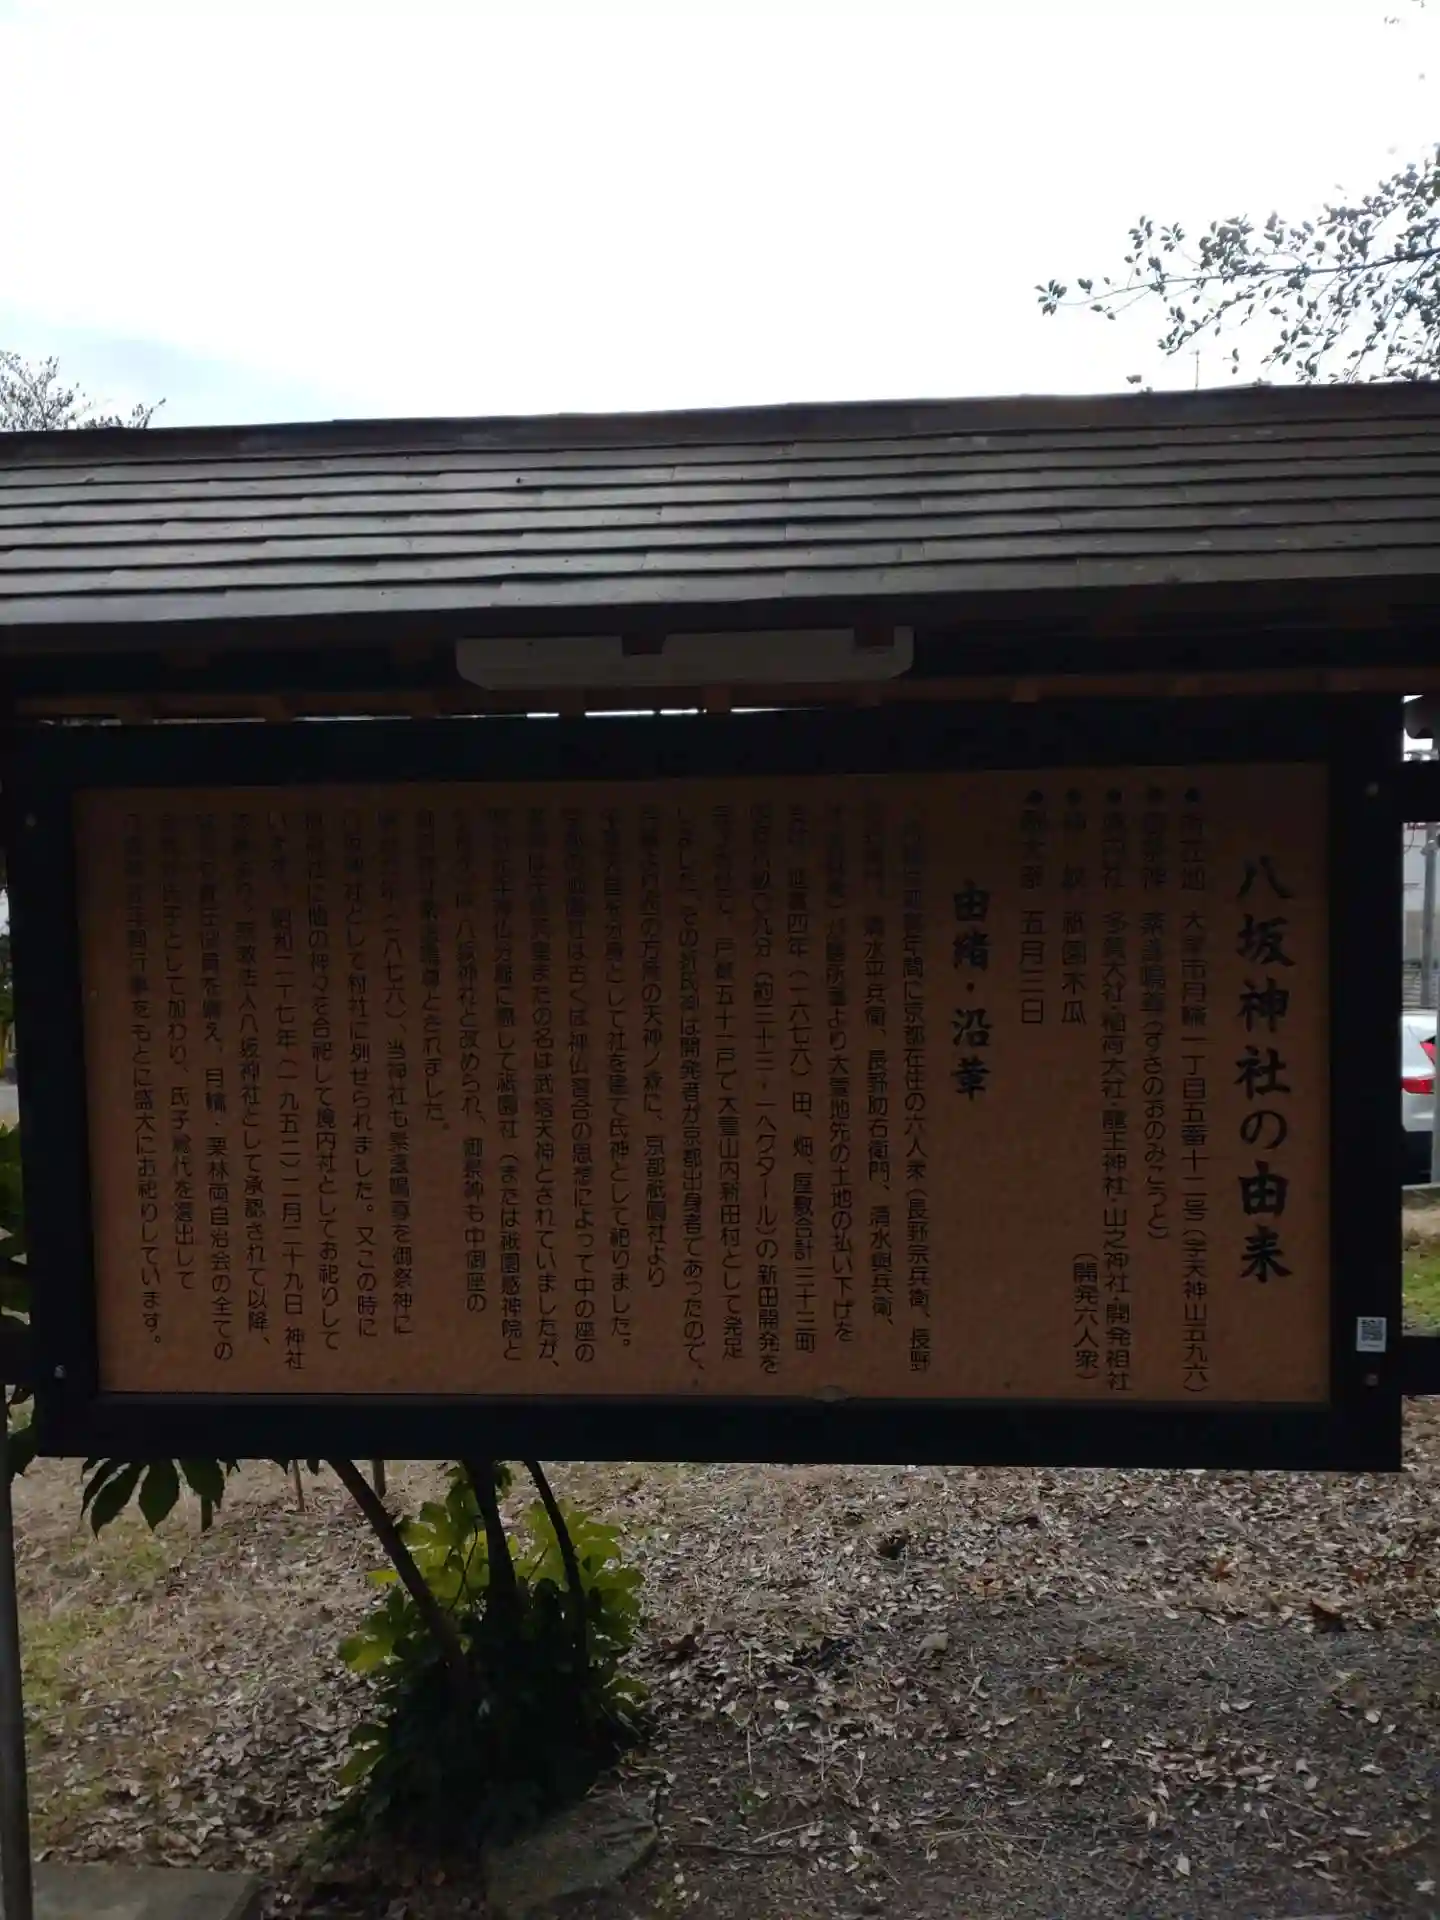 八坂神社の由来
所在地 大萱市月輪一丁目五番十二号(字天神山五九六)
御祭神 素盞嗚尊(すさのおのみこと)
境内社 多賀大社・稲荷大社・龍王神社・山之神社・開発祖社
(開発六人衆)
神紋 祇園木瓜
例大祭 五月三日
由緒・沿革
年間に京都在住の六人衆(長野宗兵衛、長野
清水平兵衛、長野助右衛門、清水與兵衛、
が膳所藩より大萱地先の土地の払い下げを
延宝四年(一六七六)田、畑、屋敷合計三十三町
〇九分(約三十三・一ヘクタール)の新田開発を
戸数五十一戸で大萱山内新田村として発足
しました。その折氏神は開発者が京都出身者であったので、
の方除の天神ノ森に、京都祇園社より
として社を建て氏神として祀りました。
祇園社は古くは神仏習合の思想によって中の座の
は牛頭天皇またの名は武塔天神とされていましたが、
神仏分離に際して祇園社(または祇園感神院と
八坂神社と改められ、御祭神も中御座の
素盞嗚尊とされました。
年(一八七六)、当神社も素盞嗚尊を御祭神に
八坂神社として村社に列せられました。又この時に
社に他の神々を合祀して境内社としてお祀りして
います。昭和二十七年(一九五二)二月二十九日 神社
宗教法人八坂神社として承認されて以降、
役員を揃え、月輪・栗林両自治会の全ての
氏子として加わり、氏子総代を選出して
行事をもとに盛大にお祀りしています。